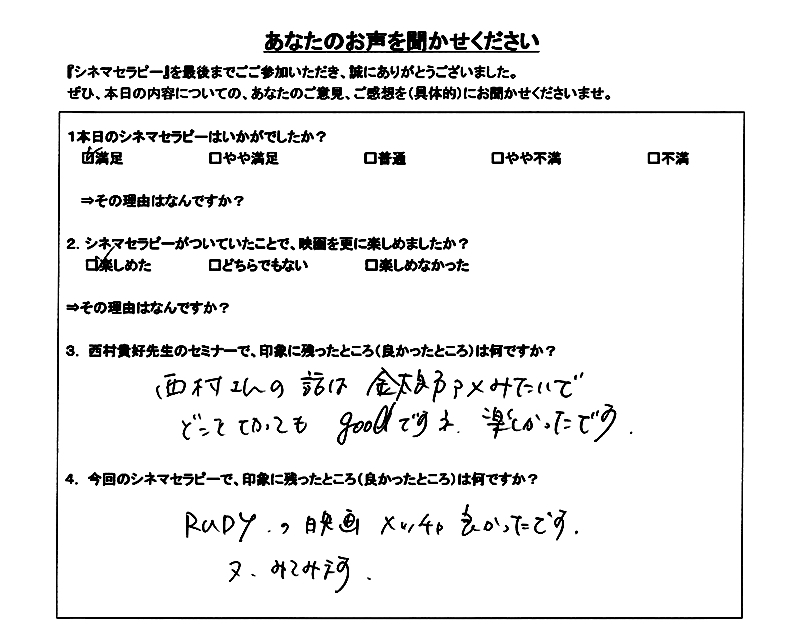 あなたのお声を聞かせください
『シネマセラピー』を最後までごご参加いただき、誠にありがとうございました。
ぜひ、本日の内容についての、あなたのご意見、ご感想を(具体的)にお聞かせくださいませ。
1本日のシネマセラピーはいかがでしたか?
☑満足 □やや満足 □普通 □やや不満 □不満
⇒その理由はなんですか?
2. シネマセラピーがついていたことで、映画を更に楽しめましたか?
☑楽しめた □どちらでもない □楽しめなかった
⇒その理由はなんですか?
3. 西村貴好先生のセミナーで、印象に残ったところ(良かったところ)は何ですか?
西村さんの話は金太郎アメみたいで
どこで切っても goodですネ. 楽しかったです.
4. 今回のシネマセラピーで、印象に残ったところ(良かったところ)は何ですか?
RUDY.の映画 メッチャ 良かったです.
又、みてみます.